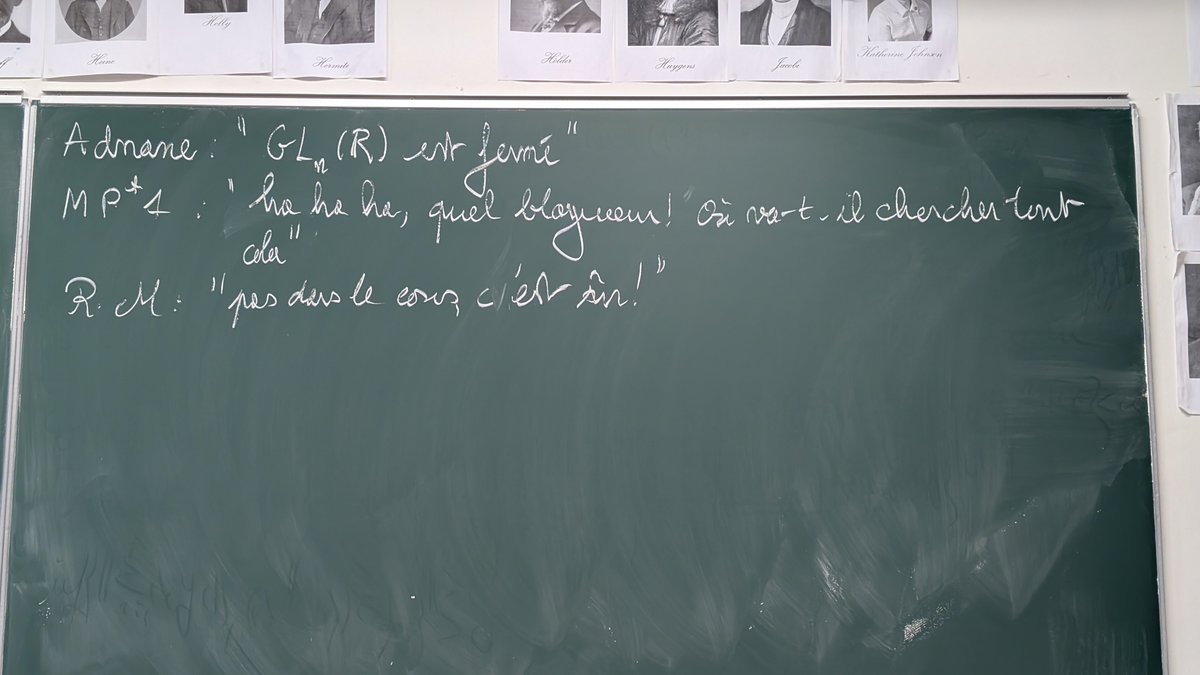 ff
Heine
Helly
Hermite
Hölder
Huygens
Jacobi
Katherine Johnson
Adnane : " GLn (R) est fermé "
MP*1 : " ha ha ha, quel blagueur! Où va-t-il chercher tout
cela"
R. M : "pas dans le cours, c'est sûr! "